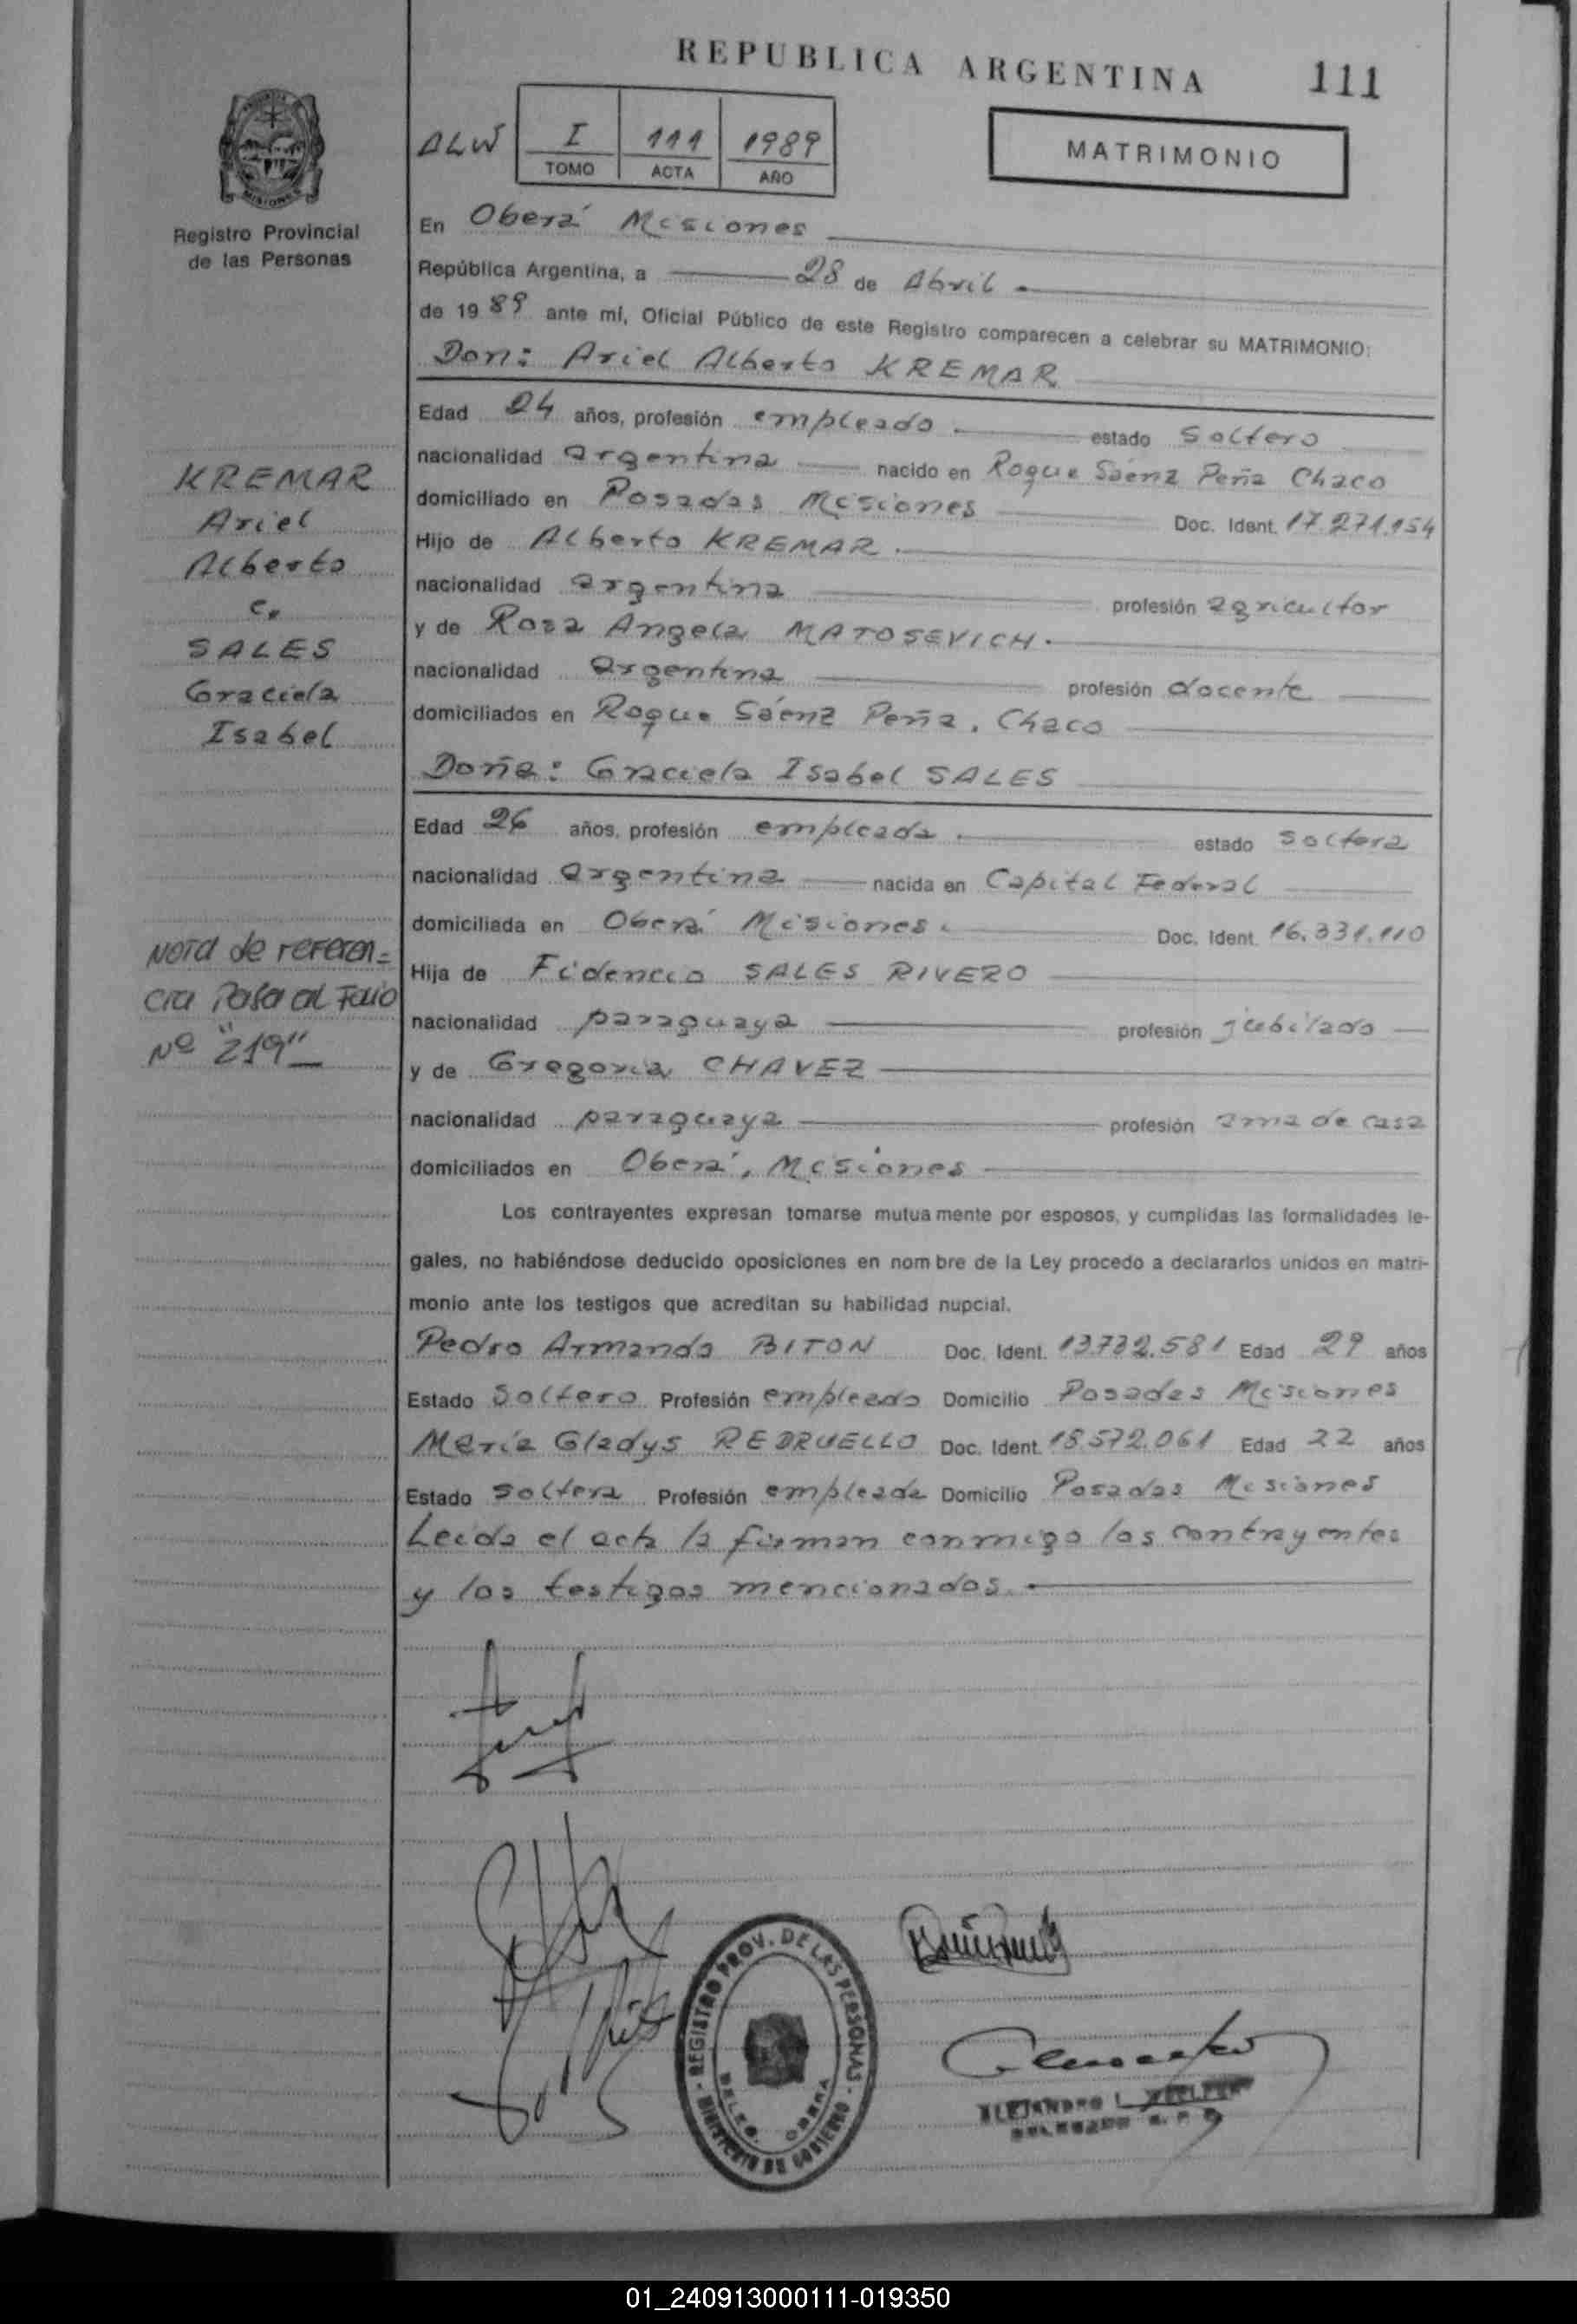 REPUBLICA ARGENTINA 111
ALW I 111 1989
TOMO ACTA AÑO
MATRIMONIO
MISIONES
Registro Provincial
de las Personas
En Oberá Misiones
República Argentina, a 28 de Abril.
de 1989 ante mí, Oficial Público de este Registro comparecen a celebrar su MATRIMONIO:
Don: Ariel Alberto KREMAR
Edad 24 años, profesión empleado. estado soltero
nacionalidad argentina nacido en Roque Sáenz Peña Chaco
domiciliado en Posadas Misiones Doc. Ident. 17.271.154
Hijo de Alberto KREMAR.
nacionalidad argentina profesión agricultor
y de Rosa Angela MATOSEVICH.
nacionalidad argentina profesión docente
domiciliados en Roque Sáenz Peña, Chaco
Doña: Graciela Isabel SALES
Edad 26 años, profesión empleada. estado soltera
nacionalidad argentina nacida en Capital Federal
domiciliada en Oberá Misiones. Doc. Ident. 16.331.110
Hija de Fidencio SALES RIVERO
nacionalidad paraguaya profesión jubilado
y de Gregoria CHAVEZ
nacionalidad paraguaya profesión ama de casa
domiciliados en Oberá, Misiones
Los contrayentes expresan tomarse mutuamente por esposos, y cumplidas las formalidades le-
gales, no habiéndose deducido oposiciones en nombre de la Ley procedo a declararlos unidos en matri-
monio ante los testigos que acreditan su habilidad nupcial.
Pedro Armando BITON Doc. Ident. 13.732.581 Edad 29 años
Estado soltero Profesión empleado Domicilio Posadas Misiones
María Gladys REDRUELLO Doc. Ident. 18.572.061 Edad 22 años
Estado soltera Profesión empleada Domicilio Posadas Misiones
Leida el acta la firman conmigo los contrayentes
y los testigos mencionados.
KREMAR
Ariel
Alberto
c.
SALES
Graciela
Isabel
Nota de referen=
cia Pasa al Folio
Nº "219"
REGISTRO PROV. DE LAS PERSONAS
MINISTERIO DE GOBIERNO
DELEG. OBERA
ALEJANDRO L.
DELEGADO R. P. P.
01_240913000111-019350